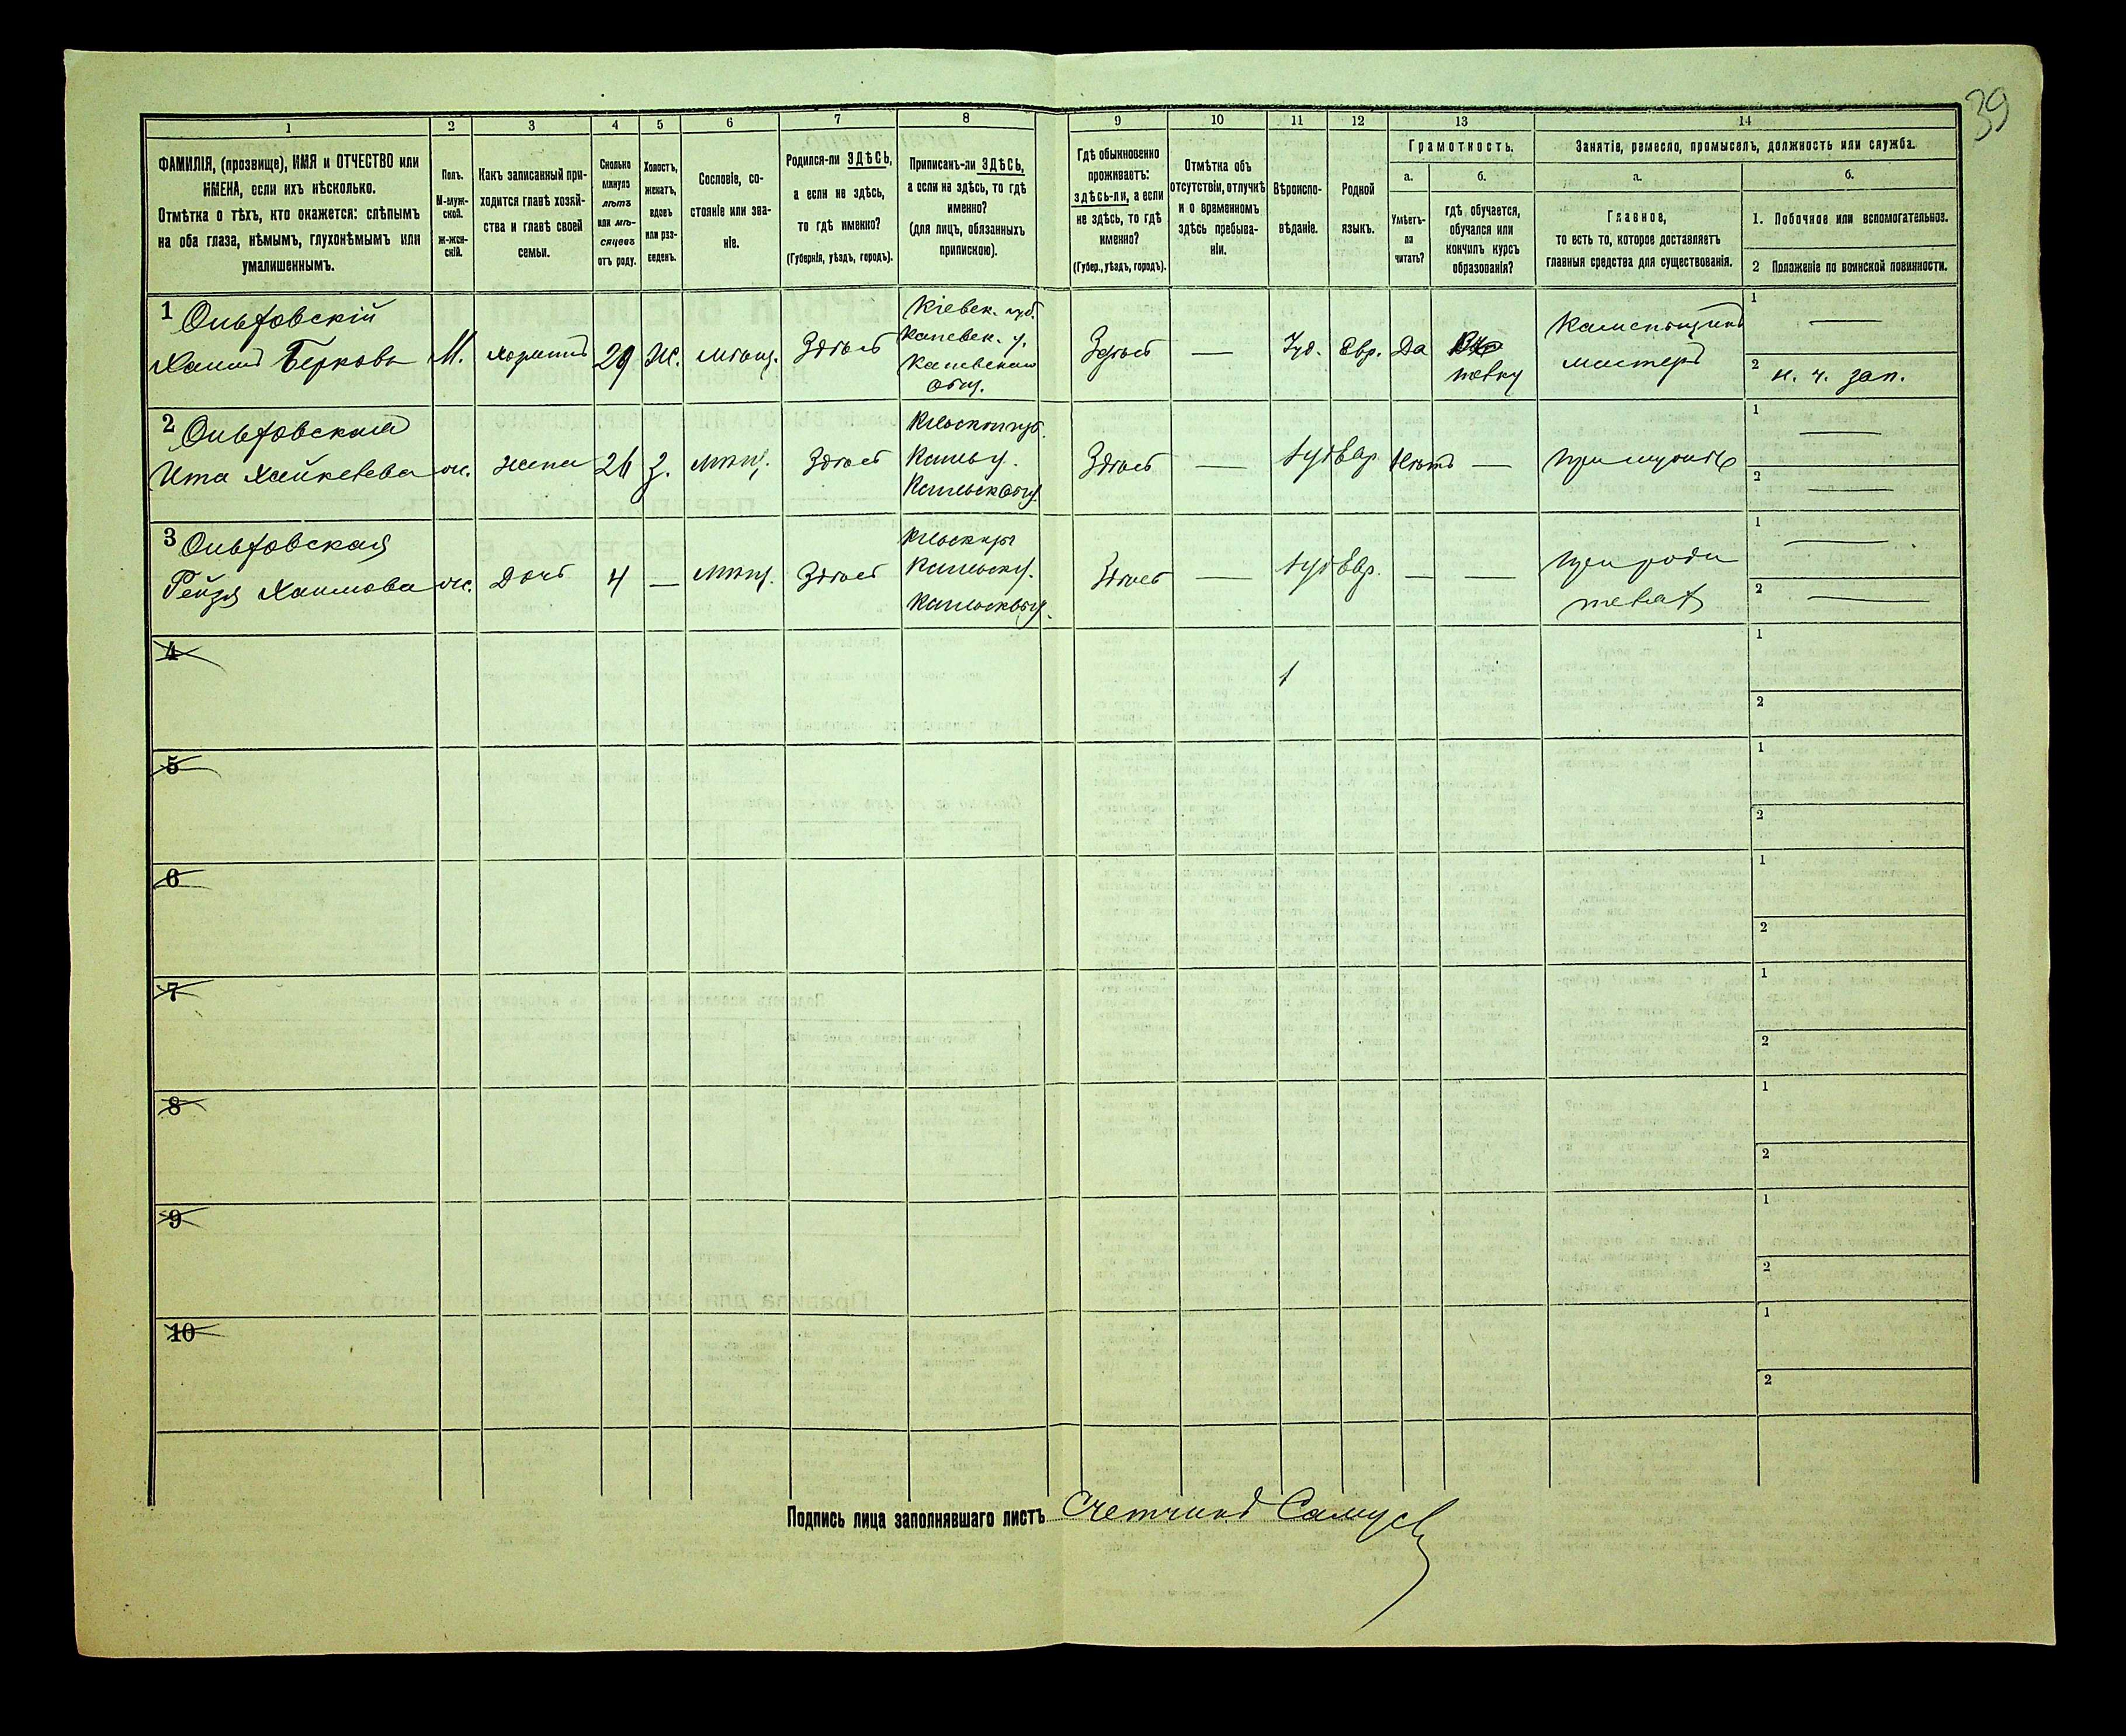 39
1 2 3 4 5 6 7 8 9 10 11 12 13 14
ФАМИЛІЯ, (прозвище), ИМЯ и ОТЧЕСТВО или
ИМЕНА, если ихъ нѣсколько.
Отмѣтка о тѣхъ, кто окажется: слѣпымъ
на оба глаза, нѣмымъ, глухонѣмымъ или
умалишеннымъ.
Полъ.
М-муж-
ской.
ж-жен-
скій.
Какъ записанный при-
ходится главѣ хозяй-
ства и главѣ своей
семьи.
Сколько
минуло
лѣтъ
или мѣ-
сяцевъ
отъ роду.
Холостъ,
женатъ,
вдовъ
или раз-
веденъ.
Сословіе, со-
стояніе или зва-
ніе.
Родился-ли ЗДѢСЬ,
а если не здѣсь,
то гдѣ именно?
(Губернія, уѣздъ, городъ).
Приписанъ-ли ЗДѢСЬ,
а если не здѣсь, то гдѣ
именно?
(для лицъ, обязанныхъ
припискою).
Гдѣ обыкновенно
проживаетъ:
здѣсь-ли, а если
не здѣсь, то гдѣ
именно?
(Губер., уѣздъ, городъ).
Отмѣтка объ
отсутствіи, отлучкѣ
и о временномъ
здѣсь пребыва-
ніи.
Вѣроиспо-
вѣданіе.
Родной
языкъ.
Грамотность.
а.
Умѣетъ-
ли
читать?
б.
гдѣ обучается,
обучался или
кончилъ курсъ
образованія?
Занятіе, ремесло, промыселъ, должность или служба.
а.
Главное,
то есть то, которое доставляетъ
главныя средства для существованія.
б.
1. Побочное или вспомогательное.
2 Положеніе по воинской повинности.
1 Ольховскій
Хаимъ Берковъ М. 29 Ж. мѣщ. Здѣсь
Кіевск. губ.
Каневск. у.
Здѣсь — Іуд. Евр. Да
мастеръ
1 —
2 н. ч. зап.
2 Ольховская
Ита ж. жена 26 З. мѣщ. Здѣсь
Здѣсь — Іуд Евр Нѣтъ — при мужѣ
1 —
2 —
3 Ольховская
Рейзя Хаимова ж. Дочь 4 — мѣщ. Здѣсь
Здѣсь — Іуд Евр. — — при роди
теляхъ
1 —
2 —
4 1 2
5 1 2
6 1 2
7 1 2
8 1 2
9 1 2
10 1 2
Подпись лица заполнявшаго листъ Счетчикъ